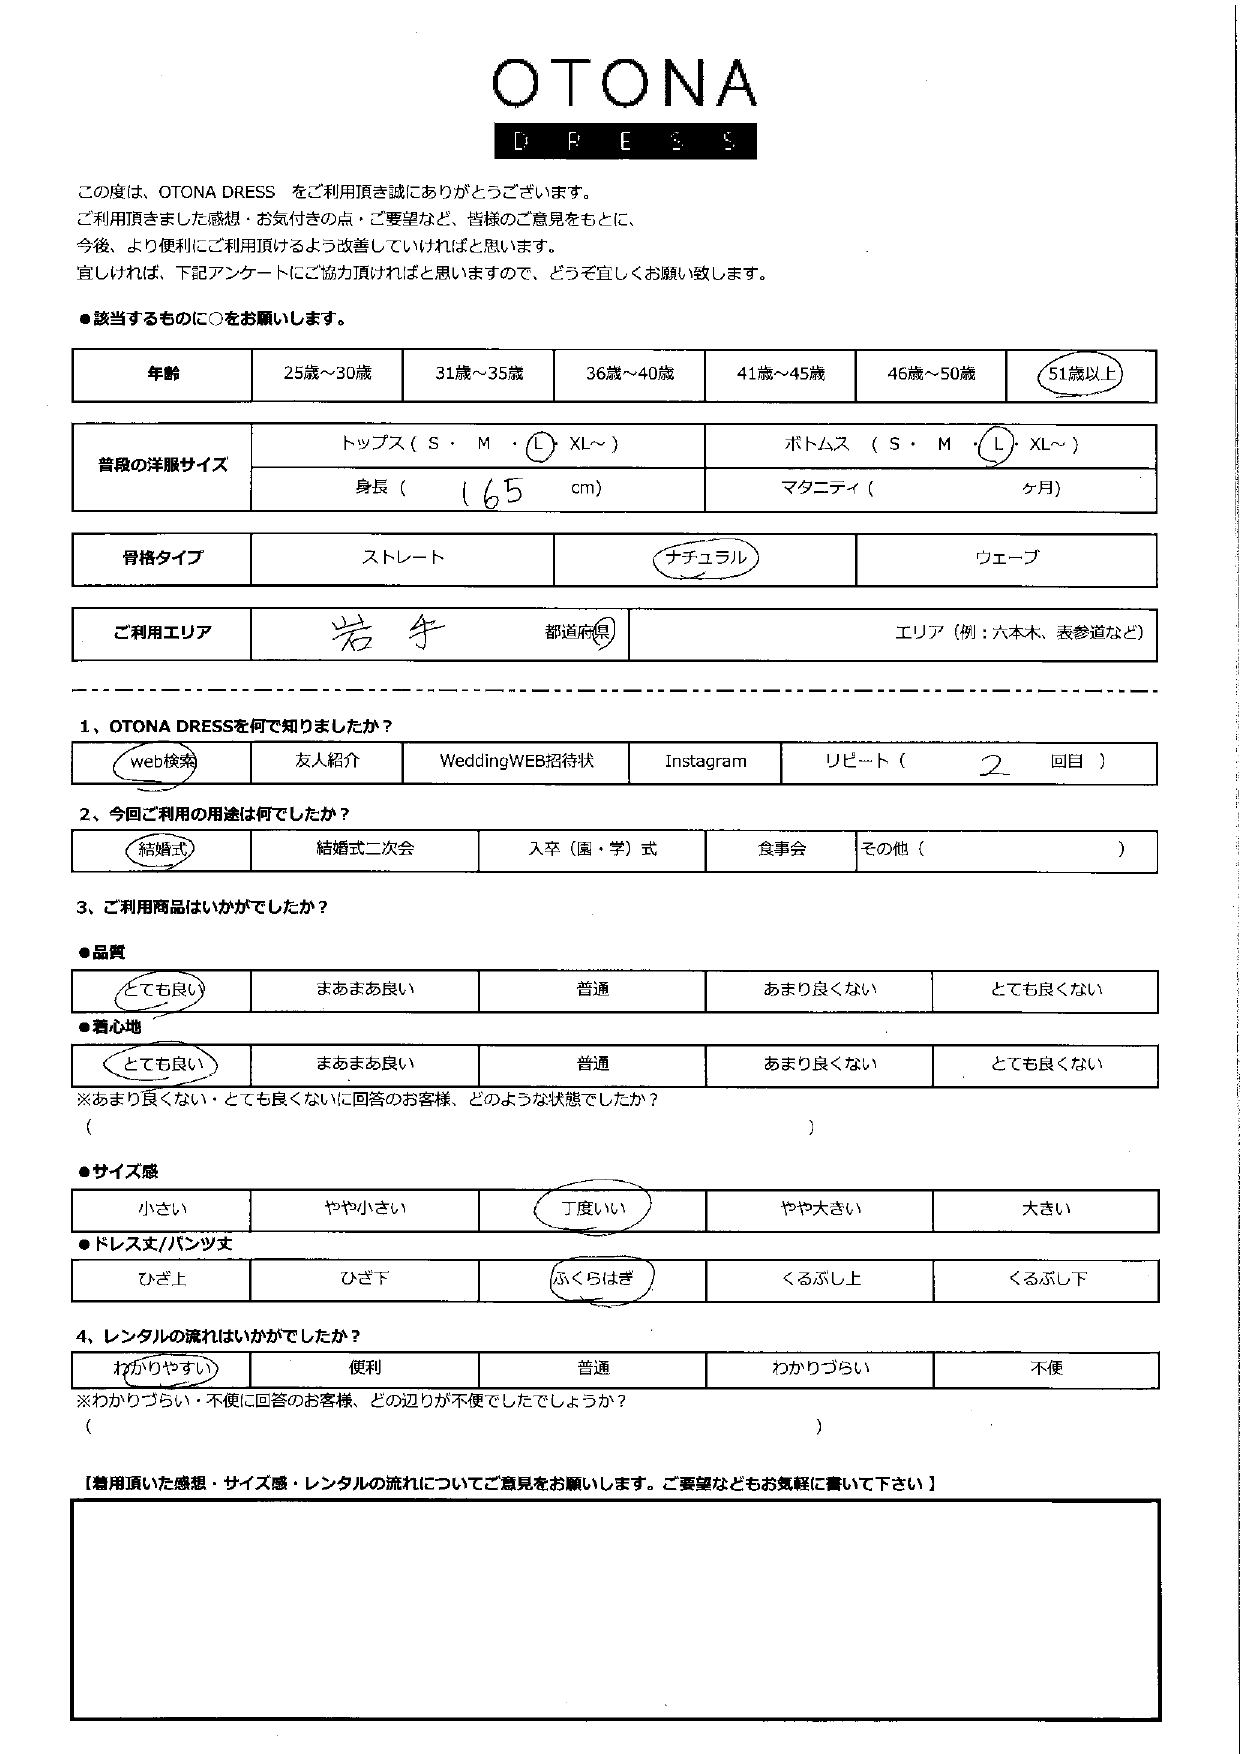 OTONA
DRESS
この度は、OTONA DRESS　をご利用頂き誠にありがとうございます。
ご利用頂きました感想・お気付きの点・ご要望など、皆様のご意見をもとに、
今後、より便利にご利用頂けるよう改善していければと思います。
宜しければ、下記アンケートにご協力頂ければと思いますので、どうぞ宜しくお願い致します。
●該当するものに○をお願いします。
年齢 25歳～30歳 31歳～35歳 36歳～40歳 41歳～45歳 46歳～50歳 51歳以上
普段の洋服サイズ トップス ( S ・ M ・ L ・ XL～ ) ボトムス ( S ・ M ・ L ・ XL～ )
身長 ( 165 cm) マタニティ ( ヶ月)
骨格タイプ ストレート ナチュラル ウェーブ
ご利用エリア 岩手 都道府県 エリア（例：六本木、表参道など）
1、OTONA DRESSを何で知りましたか？
web検索 友人紹介 WeddingWEB招待状 Instagram リピート ( 2 回目 )
2、今回ご利用の用途は何でしたか？
結婚式 結婚式二次会 入卒（園・学）式 食事会 その他 ( )
3、ご利用商品はいかがでしたか？
●品質
とても良い まあまあ良い 普通 あまり良くない とても良くない
●着心地
とても良い まあまあ良い 普通 あまり良くない とても良くない
※あまり良くない・とても良くないに回答のお客様、どのような状態でしたか？
( )
●サイズ感
小さい やや小さい 丁度いい やや大きい 大きい
●ドレス丈/パンツ丈
ひざ上 ひざ下 ふくらはぎ くるぶし上 くるぶし下
4、レンタルの流れはいかがでしたか？
わかりやすい 便利 普通 わかりづらい 不便
※わかりづらい・不便に回答のお客様、どの辺りが不便でしたでしょうか？
( )
【着用頂いた感想・サイズ感・レンタルの流れについてご意見をお願いします。ご要望などもお気軽に書いて下さい】